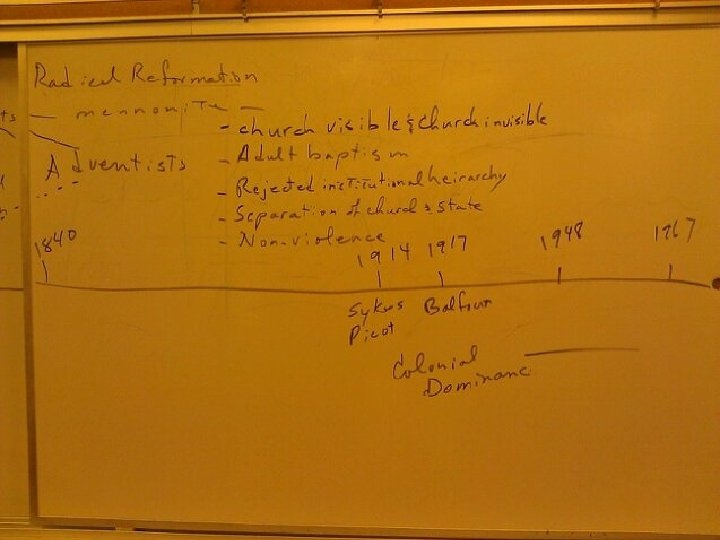 Radical Reformation
— mennonite —
- church visible & church invisible
Adventists
- Adult baptism
- Rejected institutional heirarchy
- Separation of church & state
- Non-violence
1840
1914
1917
1948
1967
Sykes
Picot
Balfour
Colonial
Dominanc